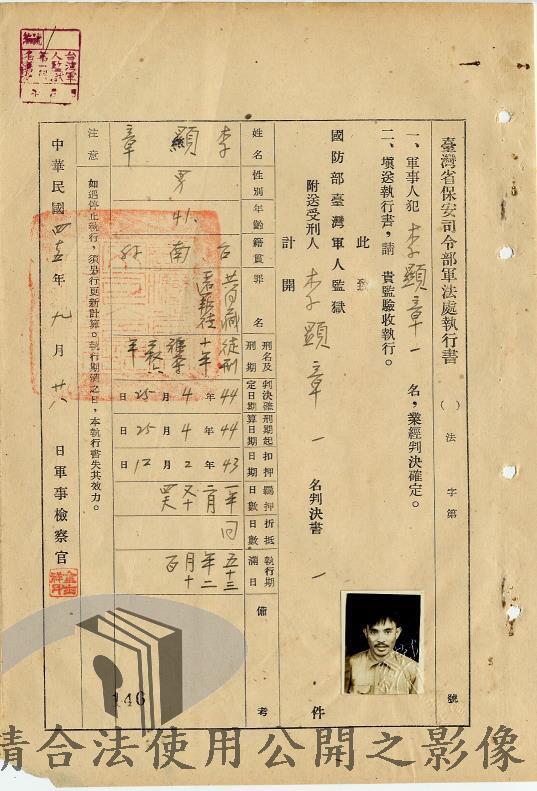 臺灣省保安司令部軍法處執行書 （ ） 法 字第 號
一、軍事人犯 李顯章 一 名，業經判決確定。
二、填送執行書，請 貴監驗收執行。
此 致
國防部臺灣軍人監獄
附送受刑人 李顯章 一 名判決書 一 件
計 開
姓名 性別 年齡 籍貫 罪名 刑名及刑期 判決確定日期 刑期起算日期 扣押日期 羈押日數 折抵日數 執行期滿日 備考
李顯章
男
41
台南
徒刑十年
44年4月25日
44年4月25日
43年2月12日
五十三年二月十
注意 如遇停止執行，須另行更新計算。執行期滿之日，本執行書失其效力。
中華民國 四五 年 九 月 廿八 日 軍事檢察官
146
請合法使用公開之影像